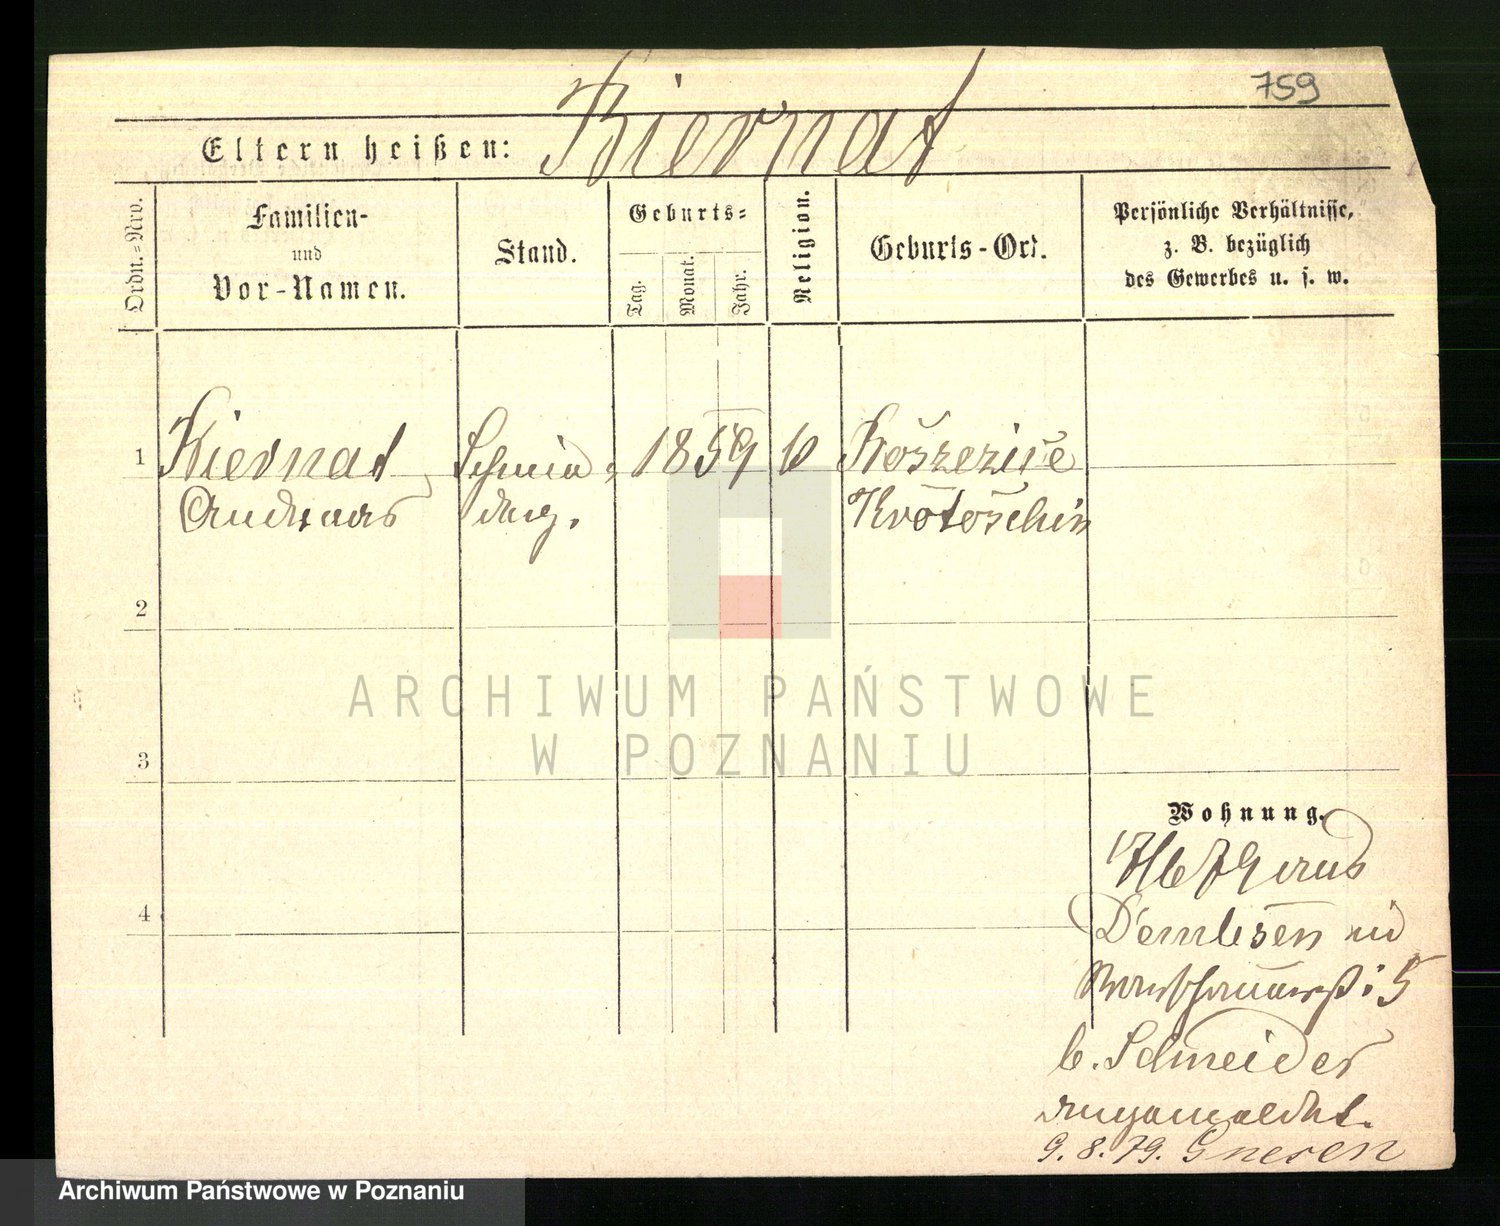 759
Eltern heißen: Biernat
Ordn.-Nro.
Familien-
und
Vor-Namen.
Stand.
Geburts-
Tag.
Monat.
Jahr.
Religion.
Geburts-Ort.
Persönliche Verhältnisse,
z. B. bezüglich
des Gewerbes u. s. w.
1
Biernat
Andreas
Schmied
1859
Krotoschin
2
3
ARCHIWUM PAŃSTWOWE
W POZNANIU
Wohnung.
4
Dembsen
5
b. Schneider
angemeldet.
9.8.79. Gnesen
Archiwum Państwowe w Poznaniu